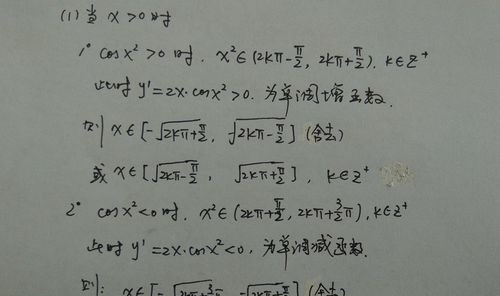 (1) 当 x>0 时
1° cosx²>0 时. x²∈(2kπ-π/2, 2kπ+π/2). k∈Z⁺
此时 y'=2x·cosx²>0. 为单调增函数.
则 x∈[-√(2kπ+π/2), √(2kπ-π/2)] (舍去)
或 x∈[√(2kπ-π/2), √(2kπ+π/2)], k∈Z⁺
2° cosx²<0 时. x²∈(2kπ+π/2, 2kπ+3/2π), k∈Z⁺
此时 y'=2x·cosx²<0, 为单调减函数.
则: x∈[-√(2kπ+3/2π, -√(2kπ+π/2)] (舍去)